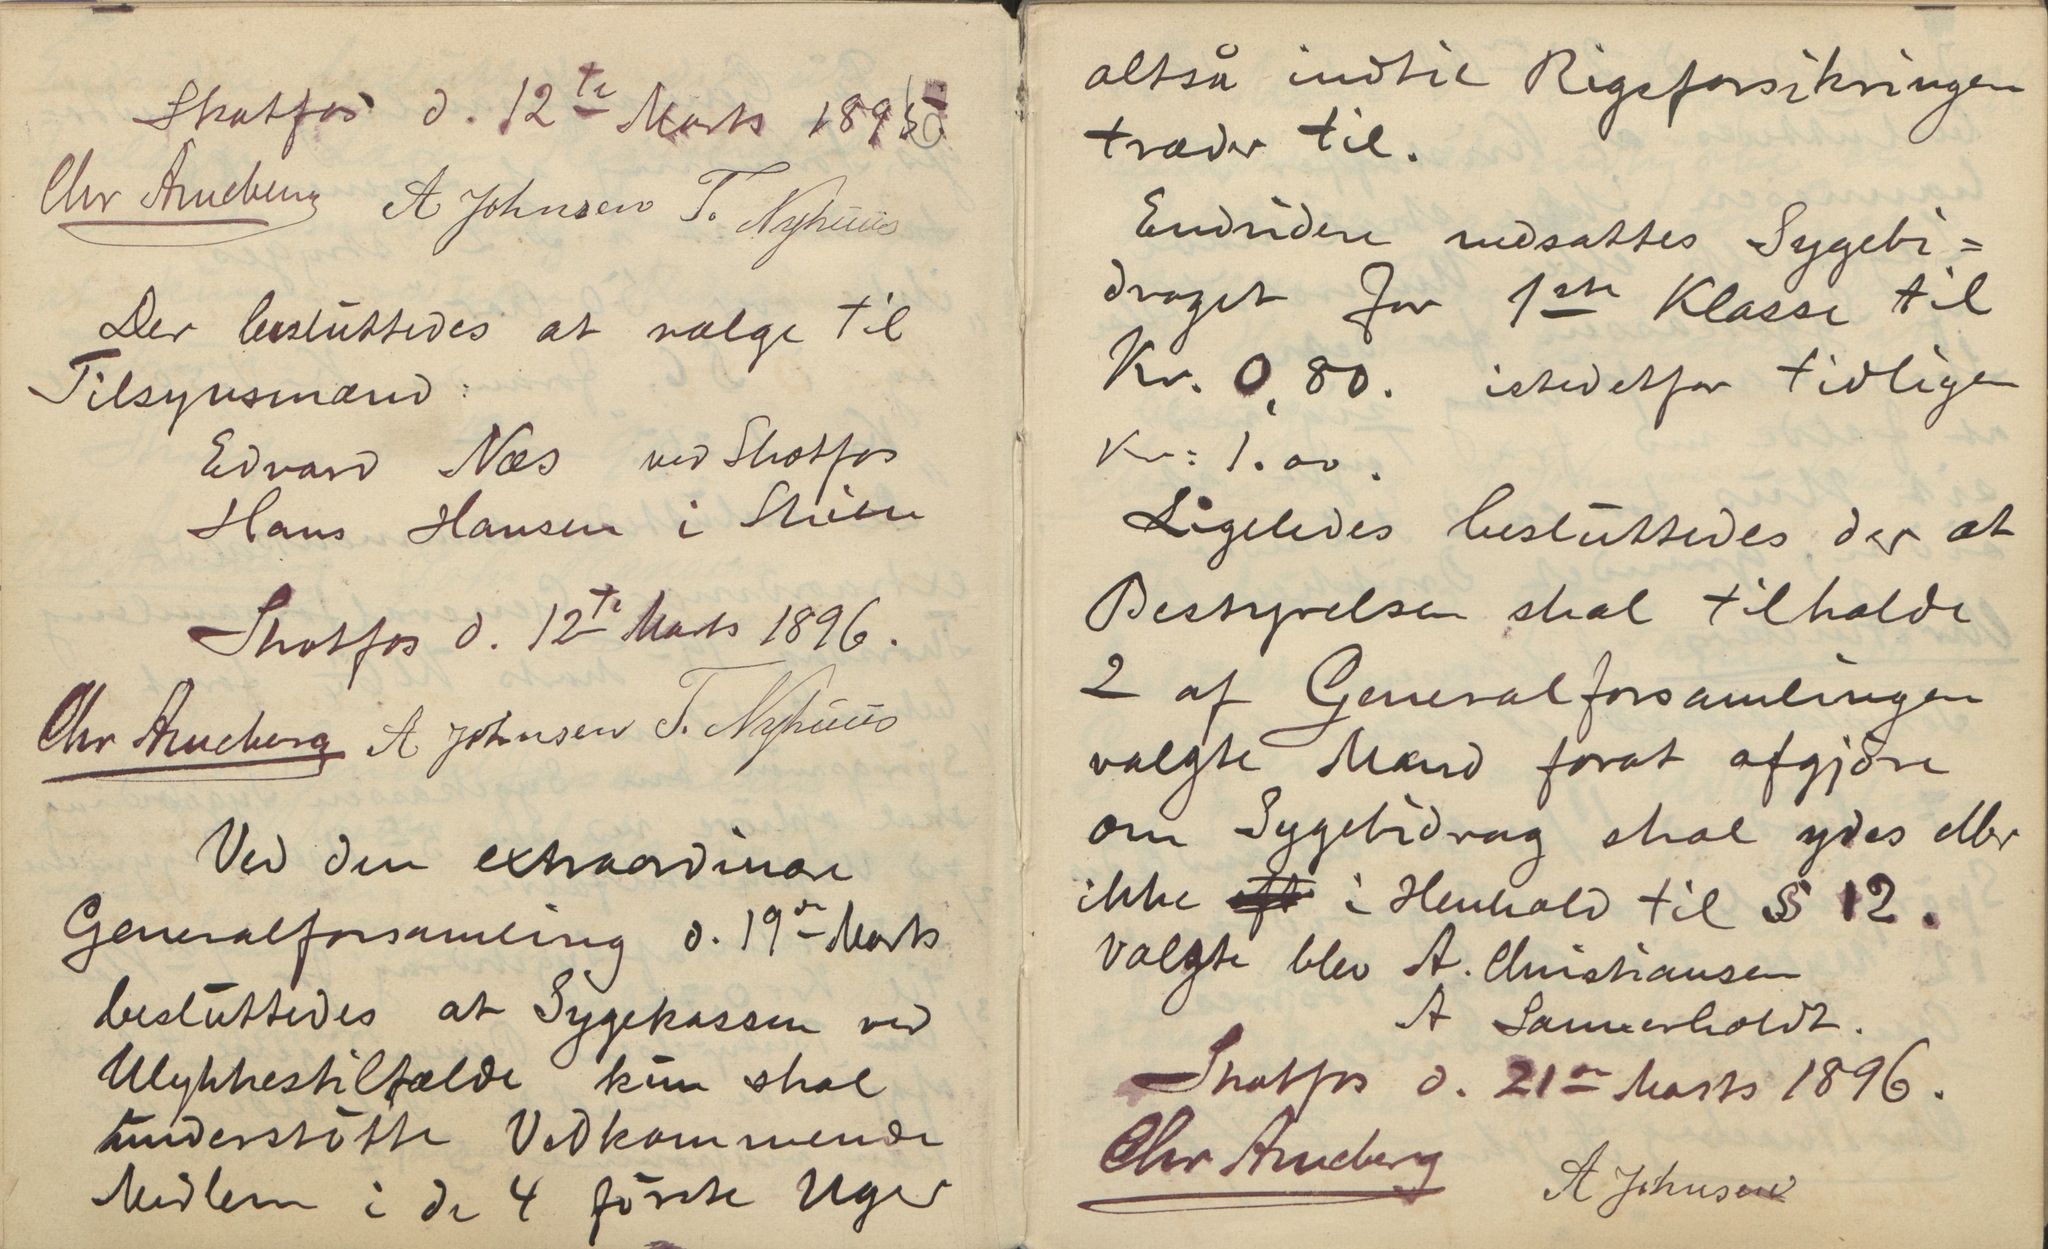 Skotfos d. 12te Marts 1896
Chr Arneberg A Johnsen T. Nyhuus
Der besluttedes at vælge til
Tilsynsmænd:
Edvard Næs ved Skotfos
Hans Hansen i Skien
Skotfos d. 12te Marts 1896.
Chr Arneberg A Johnsen T. Nyhuus
Ved den extraordinære
Generalforsamling d. 19de Marts
besluttedes at Sygekassen ved
Ulykkestilfælde kun skal
understøtte Vedkommende
Medlem i de 4 første Uger
altså indtil Rigsforsikringen
træder til.
Endvidere nedsattes Sygebi=
draget for 1ste Klasse til
Kr. 0,80. istedetfor tidligere
Kr: 1.00.
Ligeledes besluttedes der at
Bestyrelsen skal tilholde
2 af Generalforsamlingen
valgte Mænd forat afgjøre
om Sygebidrag skal ydes eller
ikke i Henhold til § 12.
Valgte blev A. Christiansen
A Sannerholdt.
Skotfos d. 21de Marts 1896.
Chr Arneberg A Johnsen